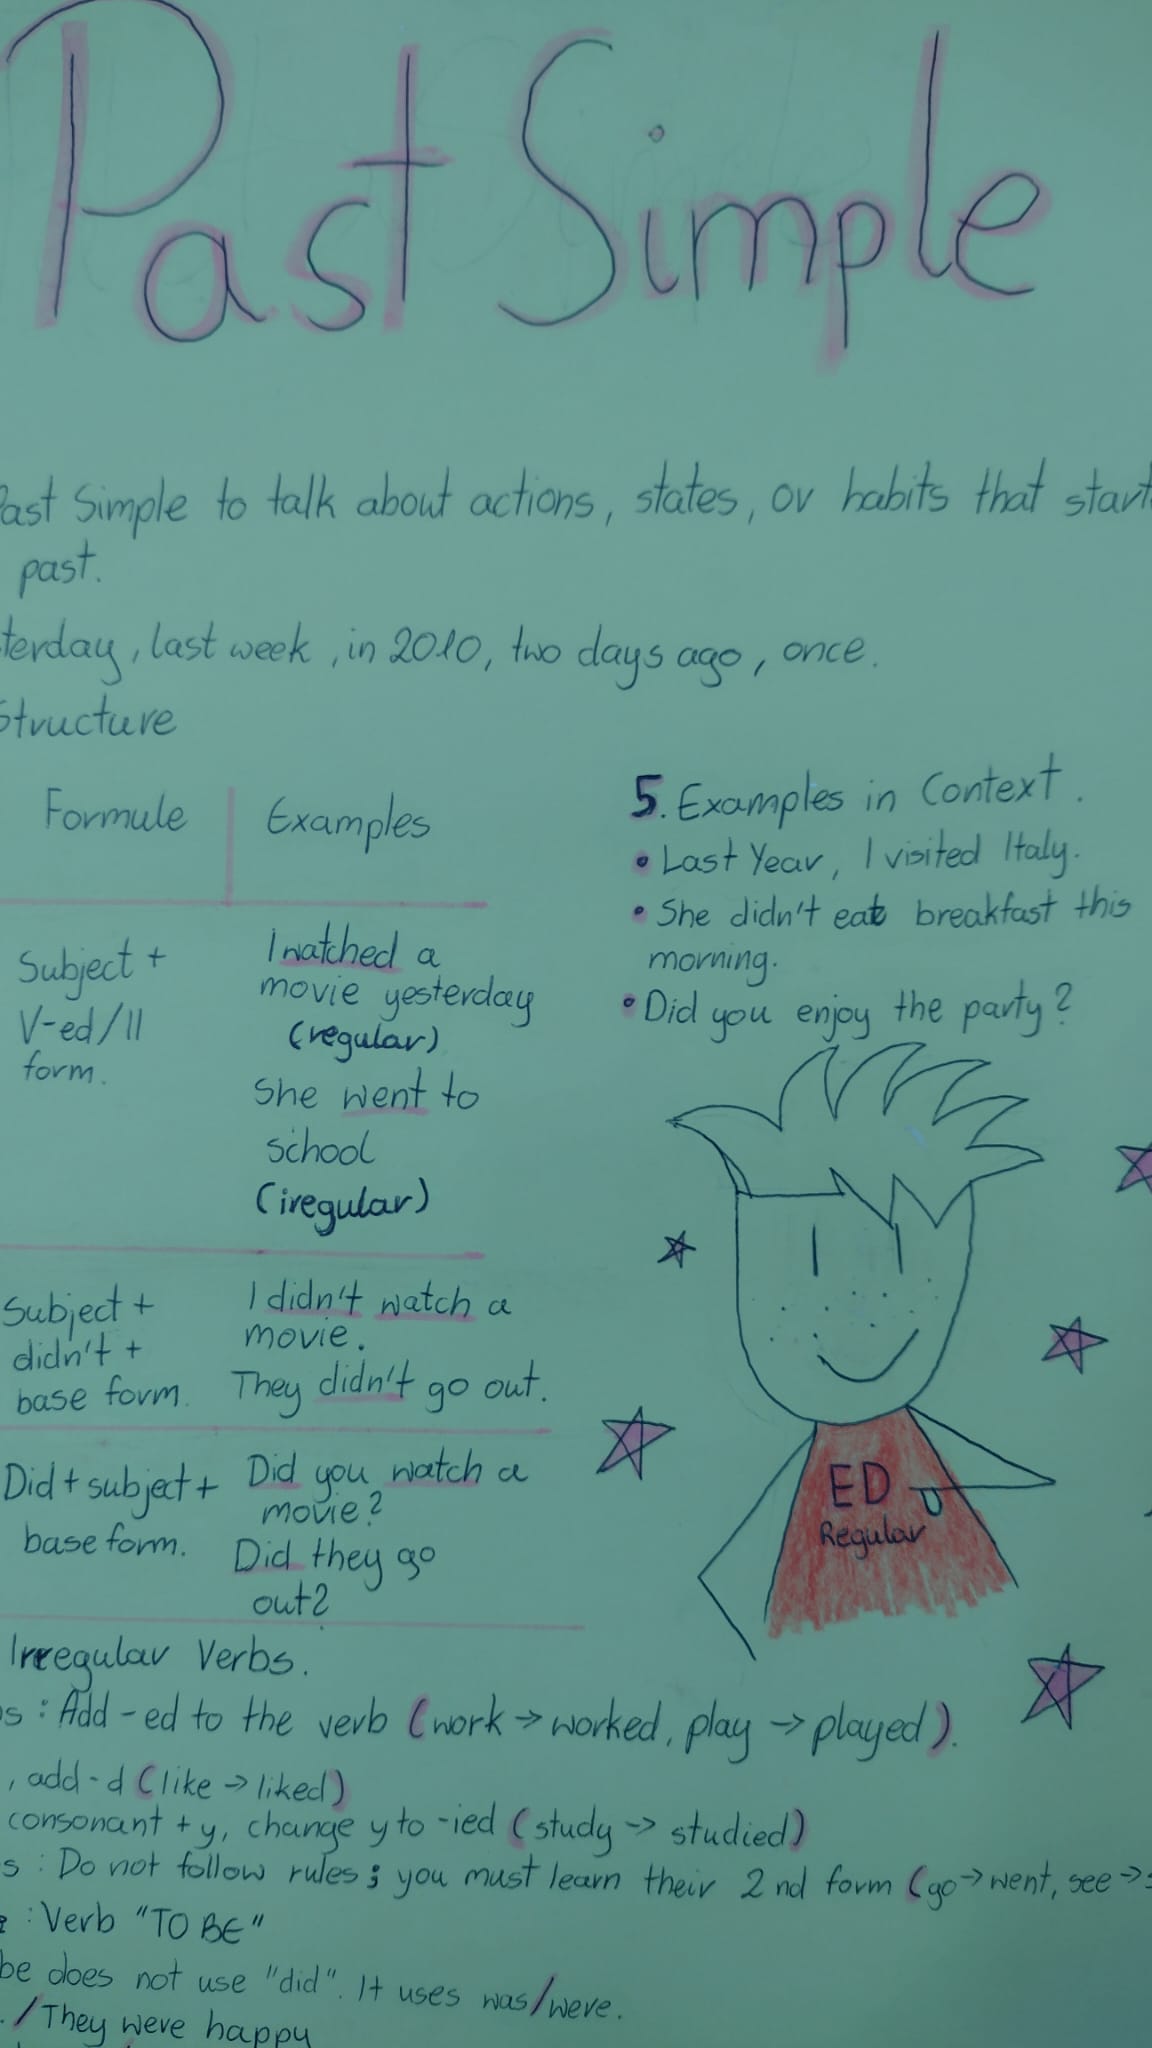 Past Simple
Past Simple to talk about actions, states, or habits that start
past.
terday, last week, in 2010, two days ago, once.
Structure
Formule
Examples
Subject +
V-ed/II
form.
I watched a
movie yesterday
(regular)
She went to
school
(iregular)
Subject +
didn't +
base form.
I didn't watch a
movie.
They didn't go out.
Did + subject +
base form.
Did you watch a
movie?
Did they go
out?
5. Examples in Context.
• Last Year, I visited Italy.
• She didn't eat breakfast this
morning.
• Did you enjoy the party?
ED
Regular
Irregular Verbs.
s : Add -ed to the verb (work → worked, play → played).
, add -d (like → liked)
consonant + y, change y to -ied (study → studied)
s : Do not follow rules; you must learn their 2nd form (go → went, see →
: Verb "TO BE"
be does not use "did". It uses was/were.
. / They were happy